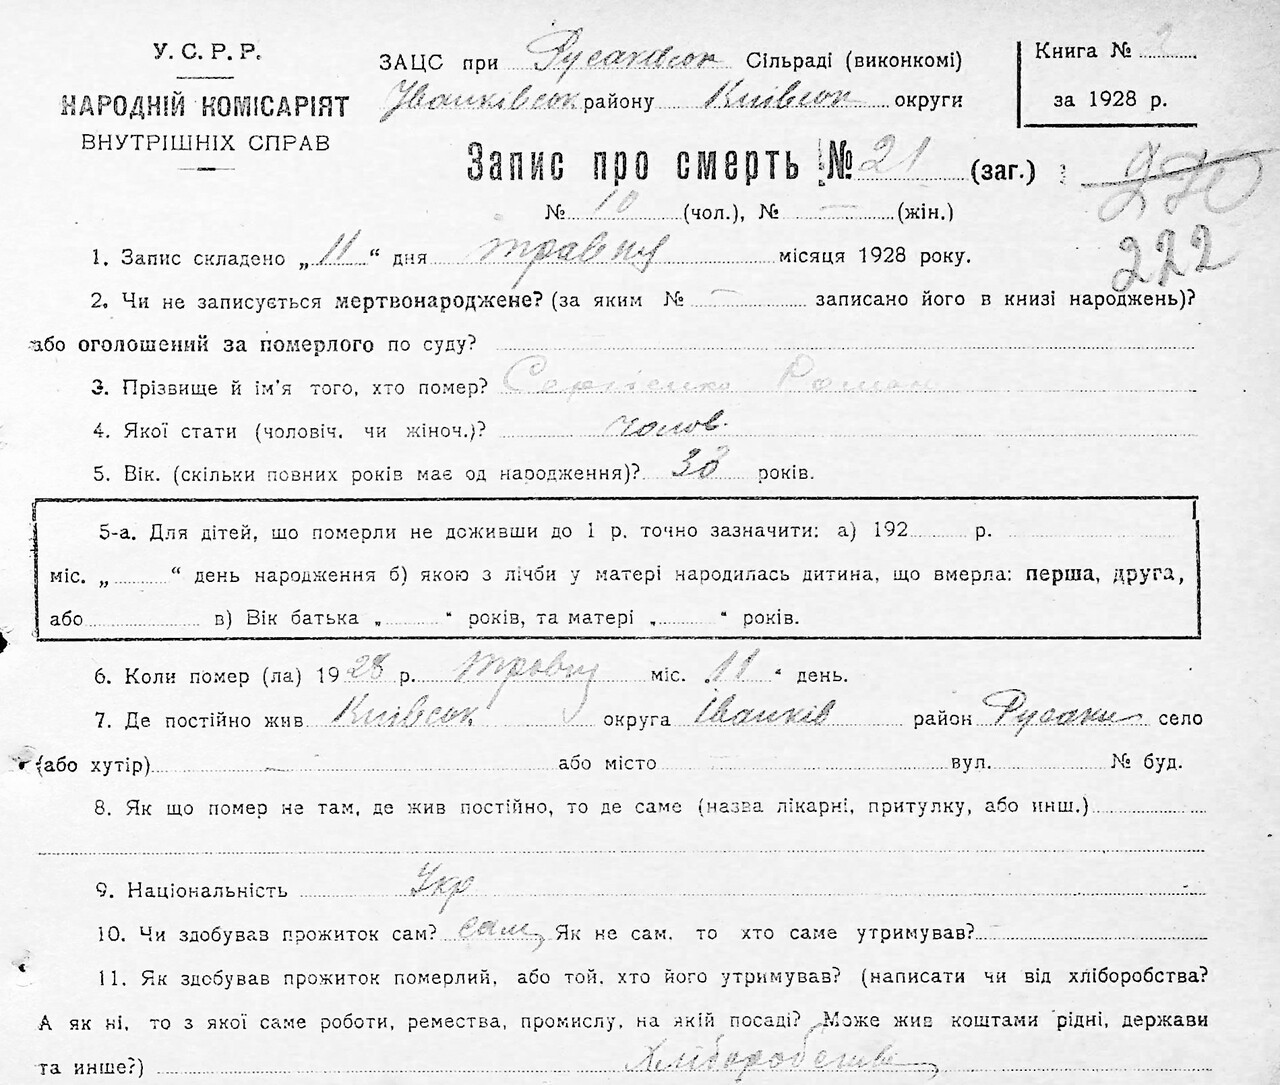 У. С. Р. Р.
НАРОДНІЙ КОМІСАРІЯТ
ВНУТРІШНІХ СПРАВ
ЗАЦС при Русаківськ Сільраді (виконкомі)
Іванківськ району Київськ округи
Книга № 2
за 1928 р.
Запис про смерть № 21 (заг.)
270
222
№ 10 (чол.), № — (жін.)
1. Запис складено „11“ дня травня місяця 1928 року.
2. Чи не записується мертвонароджене? (за яким № — записано його в книзі народжень)?
або оголошений за померлого по суду?
3. Прізвище й ім'я того, хто помер? Сергієнко Роман
4. Якої стати (чоловіч. чи жіноч.)? чолов.
5. Вік. (скільки повних років має од народження)? 33 років.
5-а. Для дітей, що померли не доживши до 1 р. точно зазначити: а) 192 р.
міс. „ “ день народження б) якою з лічби у матері народилась дитина, що вмерла: перша, друга,
або в) Вік батька „ “ років, та матері „ “ років.
6. Коли помер (ла) 1928 р. травня міс. 11 “ день.
7. Де постійно жив Київськ округа Іванків район Русаки село
(або хутір) — або місто вул. № буд.
8. Як що помер не там, де жив постійно, то де саме (назва лікарні, притулку, або инш.)
9. Національність Укр
10. Чи здобував прожиток сам? сам Як не сам, то хто саме утримував?
11. Як здобував прожиток померлий, або той, хто його утримував? (написати чи від хліборобства?
А як ні, то з якої саме роботи, ремества, промислу, на якій посаді? Може жив коштами рідні, держави
та инше?) Хліборобство